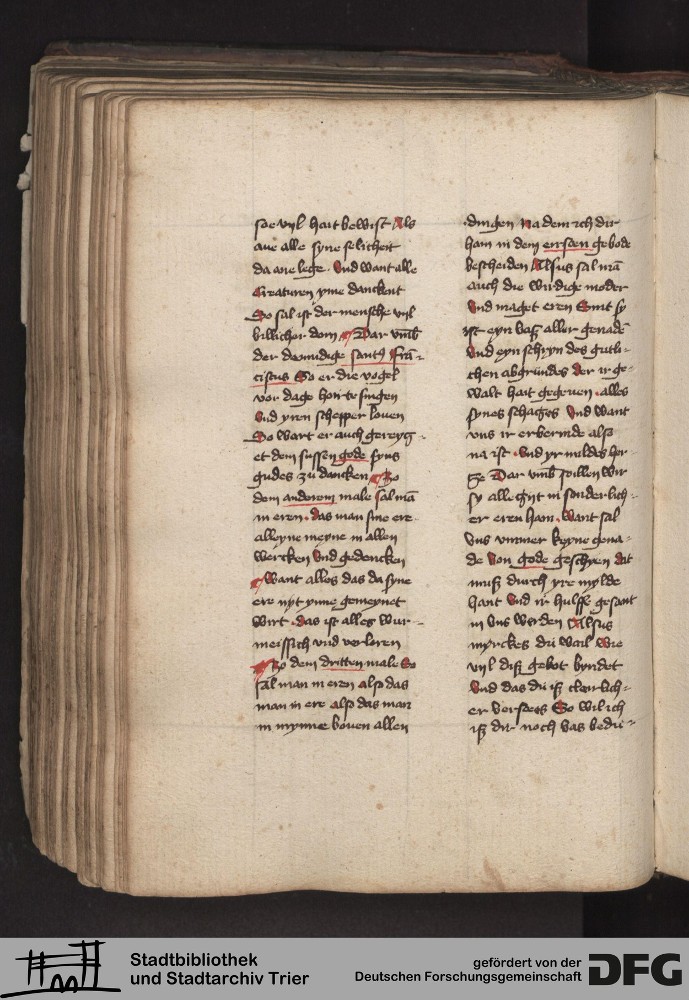 soe vyl hait bewist Als
aue alle syne selicheit
da ane lege. Vnd want alle
Creaturen yme danckent
So sal ist der mensche vyl
billicher doin Dar vmb
der demudige sant9 Frā-
ciscus So er die vogel
vor dage horte singen
Vnd yren schepper louen
So wart er auch gereyg-
et dem sussen gode syns
gudes zu dancken Zo
dem anderem male sal mā
in eren. das man sine ere
alleyne meyne in allen
wercken Vnd gedencken
Want alles das da syne
ere nyt ynne gemeynet
wirt. das ist alles wur-
messich vnd verloren
Zo dem dritten male So
sal man in eren also das
man in ere also das man
in mynne bouen allen
dingen Na dem ich dir
hain in dem eirsten gebode
bescheiden Alsus sal mā
auch die wirdige moder
Vnd maget eren Sint sy
ist eyn vaß aller genadē
Vnd eyn schryn des gutli-
chen abgrundes der ir ge-
walt hait gegeuen. alles
synes schatzes Vnd want
vns ir erbermde also
na ist. Vnd yr mildes her-
tze Dar vmb soillen wir
sy alle zijt in sonderlich-
er eren hain. Want sal
Vns vmmer keyne gena-
de Von gode geschyen dat
muß durch yre mylde
hant Vnd ir hulffe gesant
in vns werden Alsus
myrckes du wail Wie
vyl diß gebot byndet
Vnd das du iß clerlich-
er verstees So wil ich
iß dir noch bas bedu-
Stadtbibliothek
und Stadtarchiv Trier
gefördert von der
Deutschen Forschungsgemeinschaft
DFG